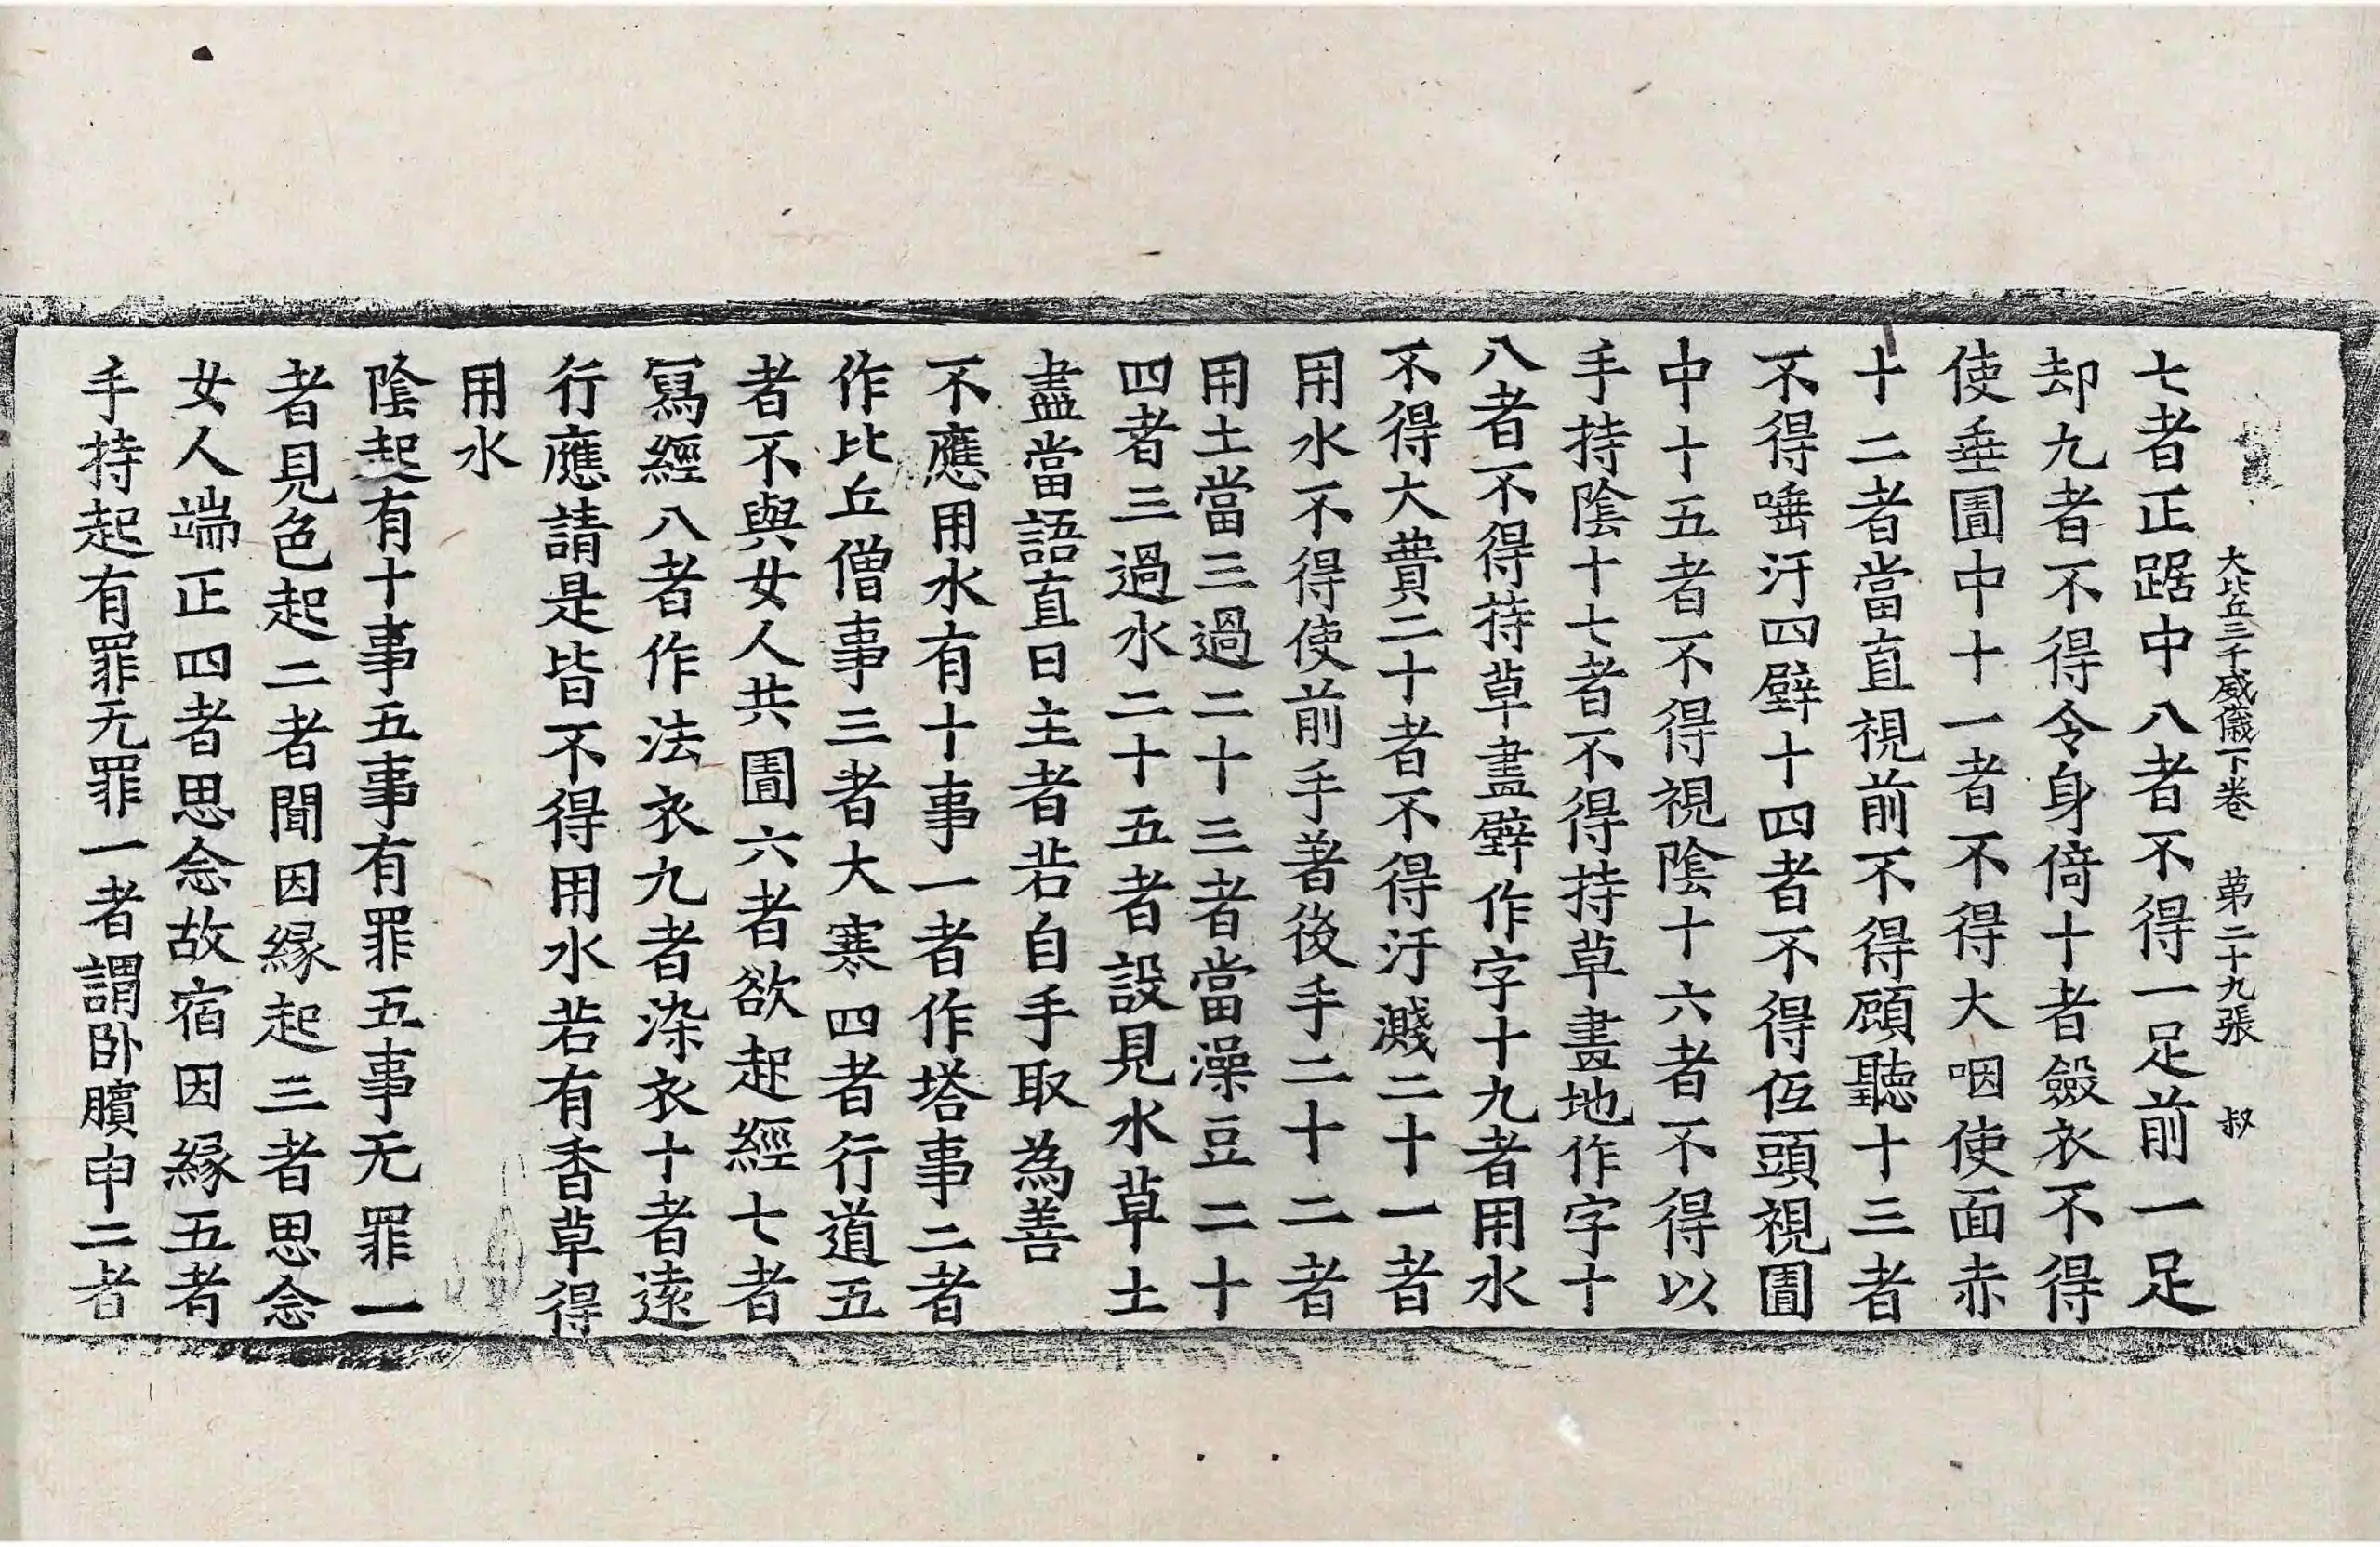 大比丘三千威儀下卷　第二十九張　叔
七者正踞中八者不得一足前一足
却九者不得令身倚十者斂衣不得
使垂圊中十一者不得大咽使面赤
十二者當直視前不得顧聽十三者
不得唾汙四壁十四者不得仾頭視圊
中十五者不得視陰十六者不得以
手持陰十七者不得持草畫地作字十
八者不得持草畫壁作字十九者用水
不得大費二十者不得汙濺二十一者
用水不得使前手著後手二十二者
用土當三過二十三者當澡豆二十
四者三過水二十五者設見水草土
盡當語直日主者若自手取為善
不應用水有十事一者作塔事二者
作比丘僧事三者大寒四者行道五
者不與女人共圊六者欲起經七者
寫經八者作法衣九者染衣十者遠
行應請是皆不得用水若有香草得
用水
陰起有十事五事有罪五事无罪一
者見色起二者聞因緣起三者思念
女人端正四者思念故宿因緣五者
手持起有罪无罪一者謂卧臏申二者